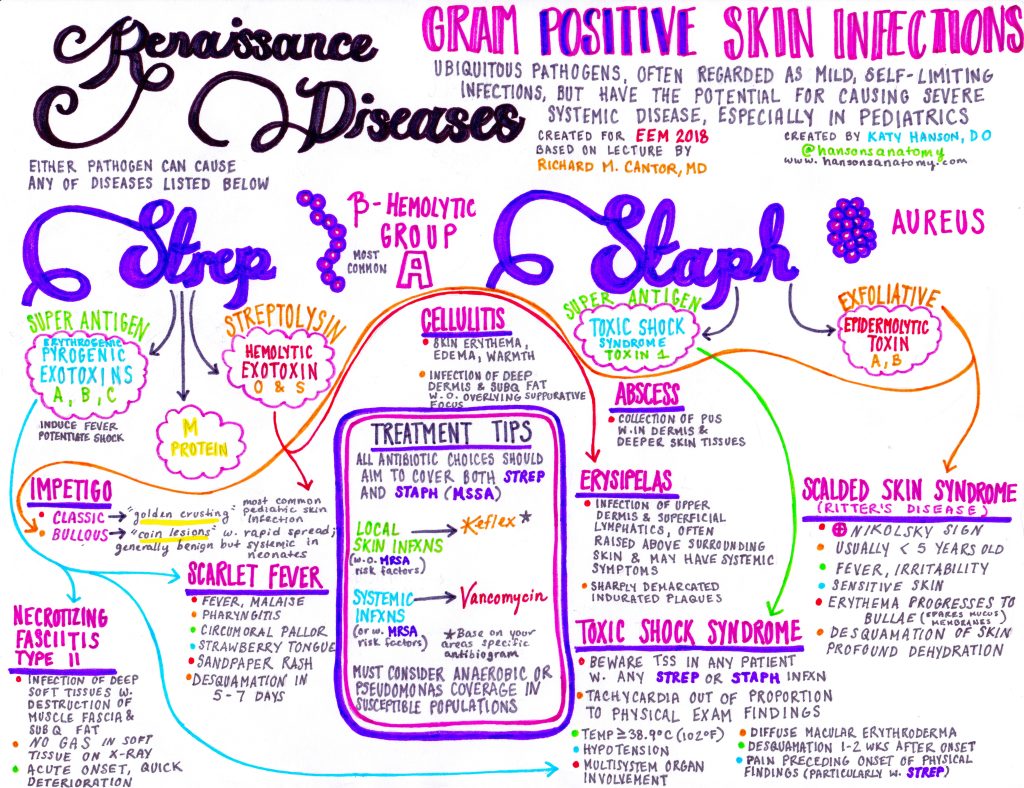 Renaissance
Diseases
GRAM POSITIVE SKIN INFECTIONS
UBIQUITOUS PATHOGENS, OFTEN REGARDED AS MILD, SELF-LIMITING
INFECTIONS, BUT HAVE THE POTENTIAL FOR CAUSING SEVERE
SYSTEMIC DISEASE, ESPECIALLY IN PEDIATRICS
CREATED FOR EEM 2018
BASED ON LECTURE BY
RICHARD M. CANTOR, MD
CREATED BY KATY HANSON, DO
@hansonsanatomy
www.hansonsanatomy.com
EITHER PATHOGEN CAN CAUSE
ANY OF DISEASES LISTED BELOW
Strep
β-HEMOLYTIC
GROUP
MOST
COMMON
A
Staph
AUREUS
SUPER ANTIGEN
ERYTHROGENIC
PYROGENIC
EXOTOXINS
A, B, C
INDUCE FEVER
POTENTIATE SHOCK
M
PROTEIN
STREPTOLYSIN
HEMOLYTIC
EXOTOXIN
O & S
CELLULITIS
• SKIN ERYTHEMA,
EDEMA, WARMTH
• INFECTION OF DEEP
DERMIS & SUBQ FAT
W.O. OVERLYING SUPPURATIVE
FOCUS
SUPER ANTIGEN
TOXIC SHOCK
SYNDROME
TOXIN 1
EXFOLIATIVE
EPIDERMOLYTIC
TOXIN
A, B
ABSCESS
• COLLECTION OF PUS
W.IN DERMIS &
DEEPER SKIN TISSUES
IMPETIGO
• CLASSIC → "golden crusting" most common
pediatric skin
infection
• BULLOUS → "coin lesions" w. rapid spread;
generally benign but systemic in
neonates
TREATMENT TIPS
ALL ANTIBIOTIC CHOICES SHOULD
AIM TO COVER BOTH STREP
AND STAPH (MSSA)
LOCAL
SKIN INFXNS → Keflex*
(w.o. MRSA
risk factors)
SYSTEMIC
INFXNS → Vancomycin
(or w. MRSA
risk factors)
*Base on your
areas specific
antibiogram
MUST CONSIDER ANAEROBIC OR
PSEUDOMONAS COVERAGE IN
SUSCEPTIBLE POPULATIONS
ERYSIPELAS
• INFECTION OF UPPER
DERMIS & SUPERFICIAL
LYMPHATICS, OFTEN
RAISED ABOVE SURROUNDING
SKIN & MAY HAVE SYSTEMIC
SYMPTOMS
• SHARPLY DEMARCATED
INDURATED PLAQUES
SCALDED SKIN SYNDROME
(RITTER'S DISEASE)
• ⊕ NIKOLSKY SIGN
• USUALLY < 5 YEARS OLD
• FEVER, IRRITABILITY
• SENSITIVE SKIN
• ERYTHEMA PROGRESSES TO
BULLAE (SPARES MUCUS
MEMBRANES)
• DESQUAMATION OF SKIN
PROFOUND DEHYDRATION
SCARLET FEVER
• FEVER, MALAISE
• PHARYNGITIS
• CIRCUMORAL PALLOR
• STRAWBERRY TONGUE
• SANDPAPER RASH
• DESQUAMATION IN
5-7 DAYS
NECROTIZING
FASCIITIS
TYPE II
• INFECTION OF DEEP
SOFT TISSUES W.
DESTRUCTION OF
MUSCLE FASCIA &
SUBQ FAT
• NO GAS IN SOFT
TISSUE ON X-RAY
• ACUTE ONSET, QUICK
DETERIORATION
TOXIC SHOCK SYNDROME
• BEWARE TSS IN ANY PATIENT
W. ANY STREP OR STAPH INFXN
• TACHYCARDIA OUT OF PROPORTION
TO PHYSICAL EXAM FINDINGS
• TEMP ≥ 38.9°C (102°F)
• HYPOTENSION
• MULTISYSTEM ORGAN
INVOLVEMENT
• DIFFUSE MACULAR ERYTHRODERMA
• DESQUAMATION 1-2 WKS AFTER ONSET
• PAIN PRECEDING ONSET OF PHYSICAL
FINDINGS (PARTICULARLY W. STREP)